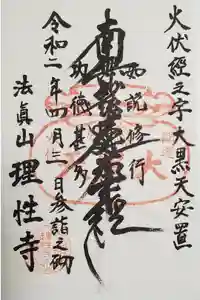 火伏経之字大黒天安置
如説修行
南無妙法蓮華経
功徳甚多
令和二年四月三日参詣之砌
法眞山 理性寺